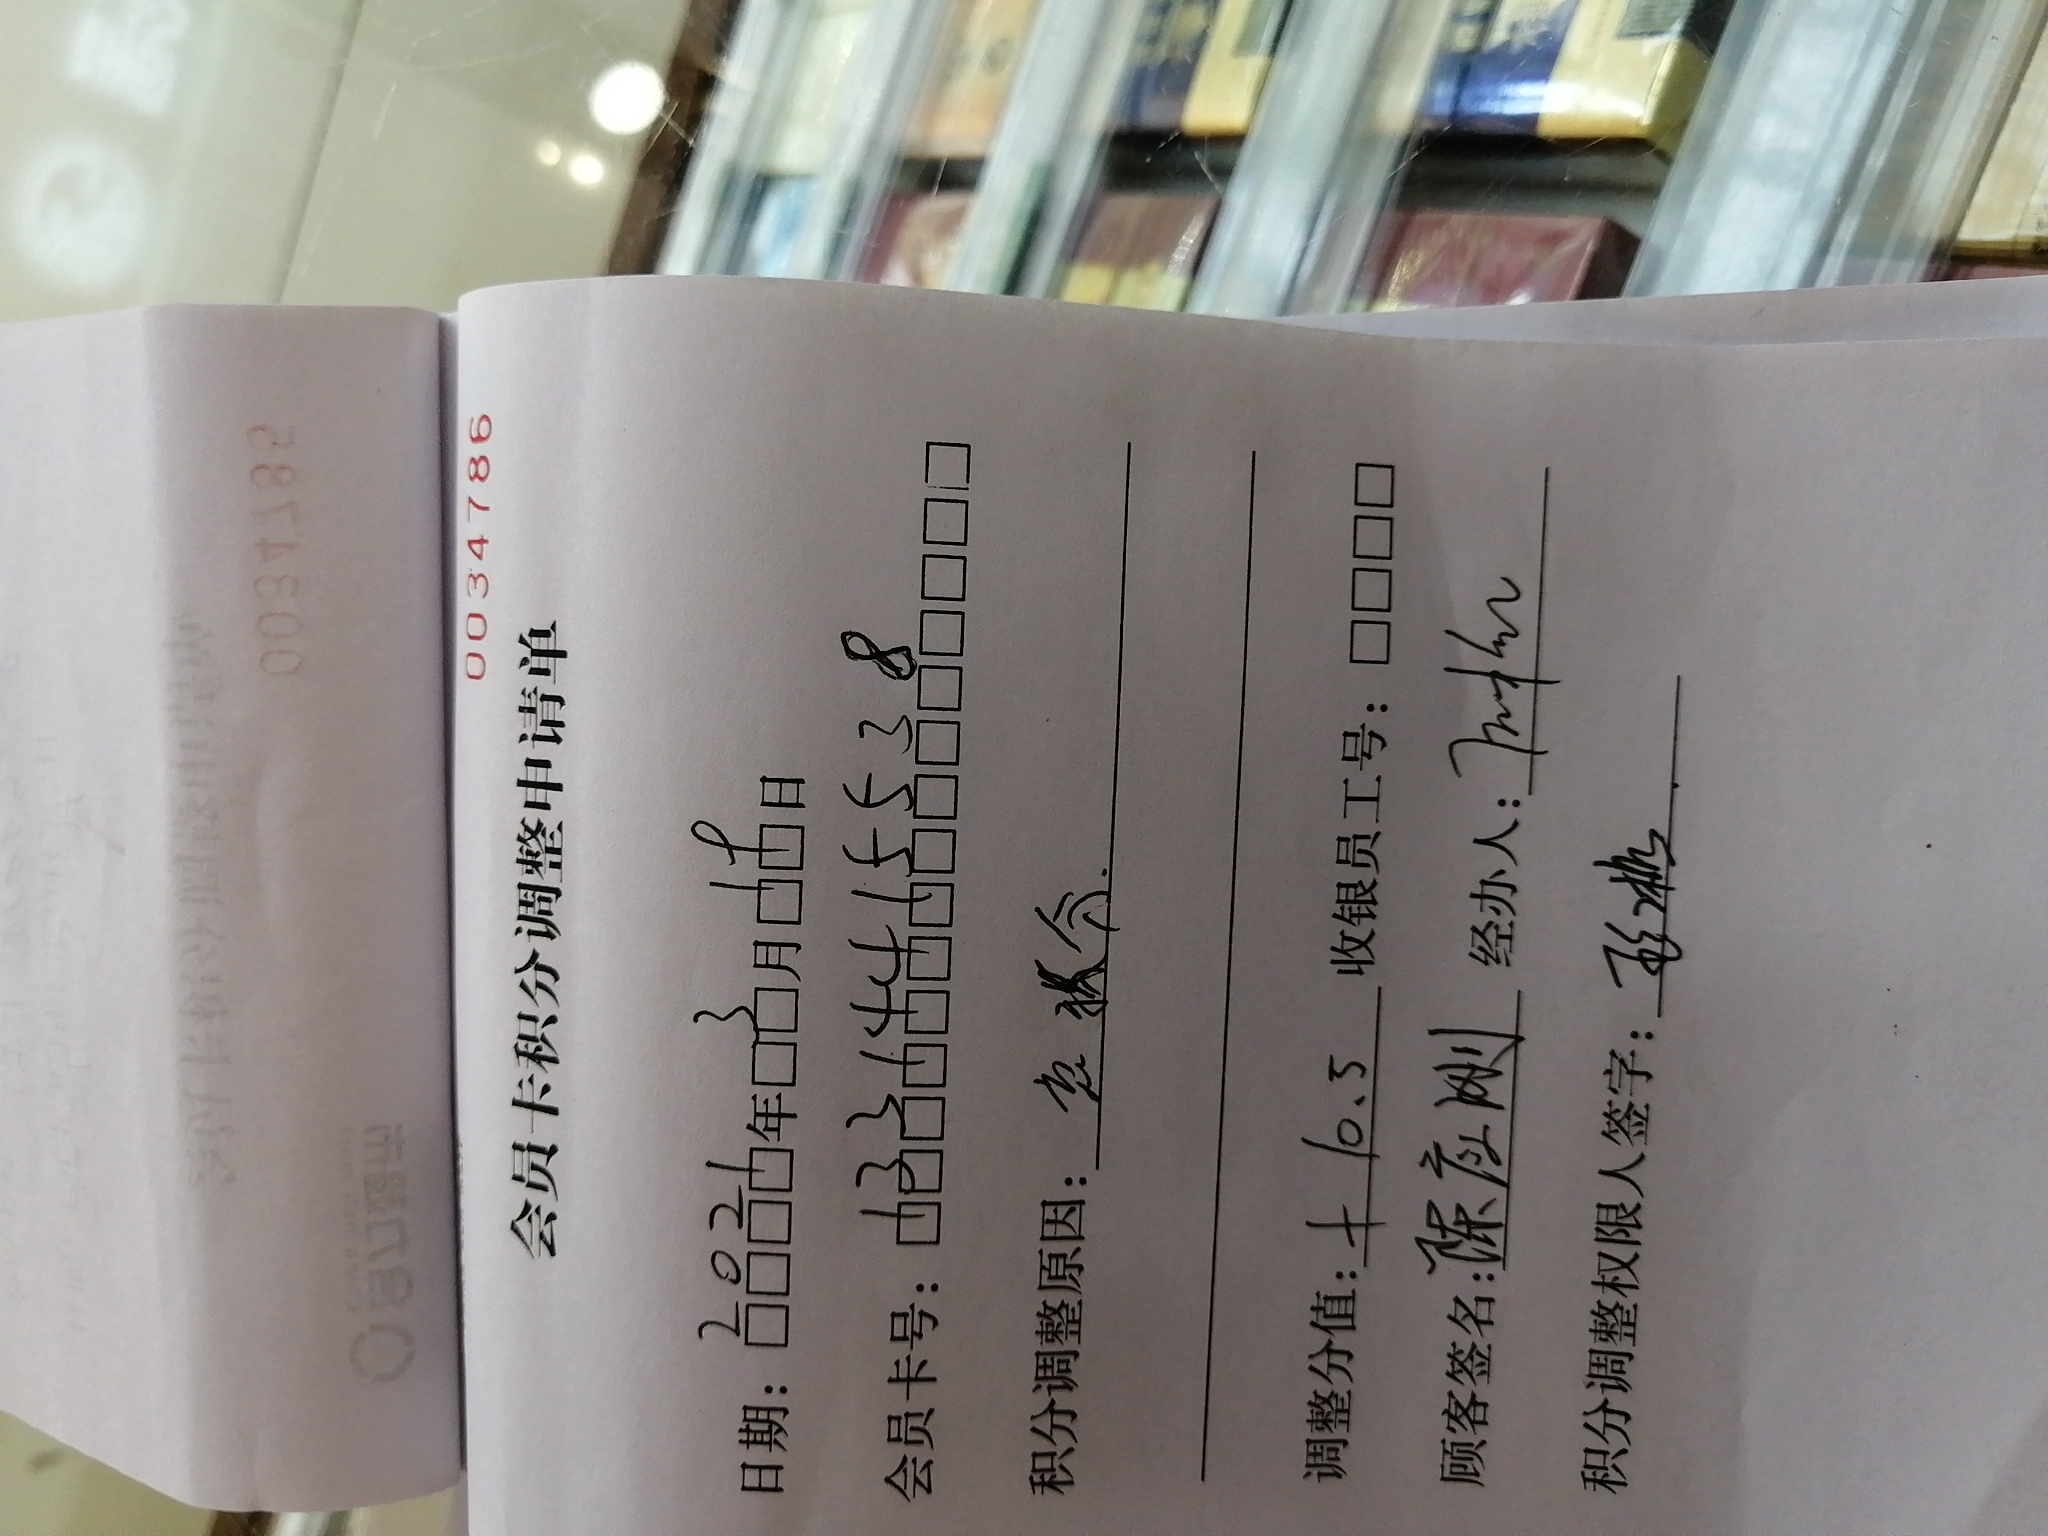 0034786
会员卡积分调整申请单
日期：2021年3月19日
会员卡号：1334415538
积分调整原因：忘积分
调整分值：+10.5 收银员工号：□□□□
顾客签名：陈应刚 经办人：
积分调整权限人签字：